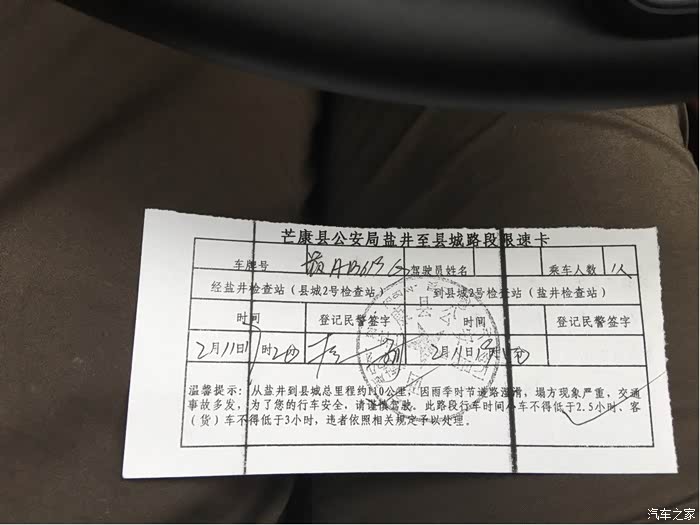 芒康县公安局盐井至县城路段限速卡
车牌号 驾驶员姓名 乘车人数 1人
经盐井检查站（县城2号检查站） 到县城2号检查站（盐井检查站）
时间 登记民警签字 时间 登记民警签字
2月11日 时 2月11日
温馨提示：从盐井到县城总里程约110公里，因雨季时节道路湿滑，塌方现象严重，交通
事故多发，为了您的行车安全，请谨慎驾驶。此路段行车时间小车不得低于2.5小时、客
（货）车不得低于3小时，违者依照相关规定予以处理。
汽车之家